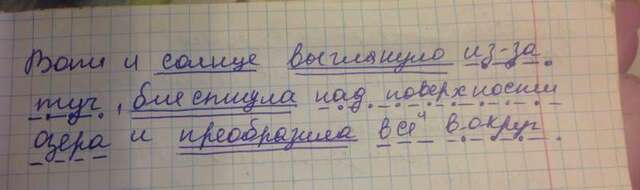 Вот и солнце выглянуло из-за
туч, блеснула над поверхности
озера и преобразила всё⁴ вокруг.